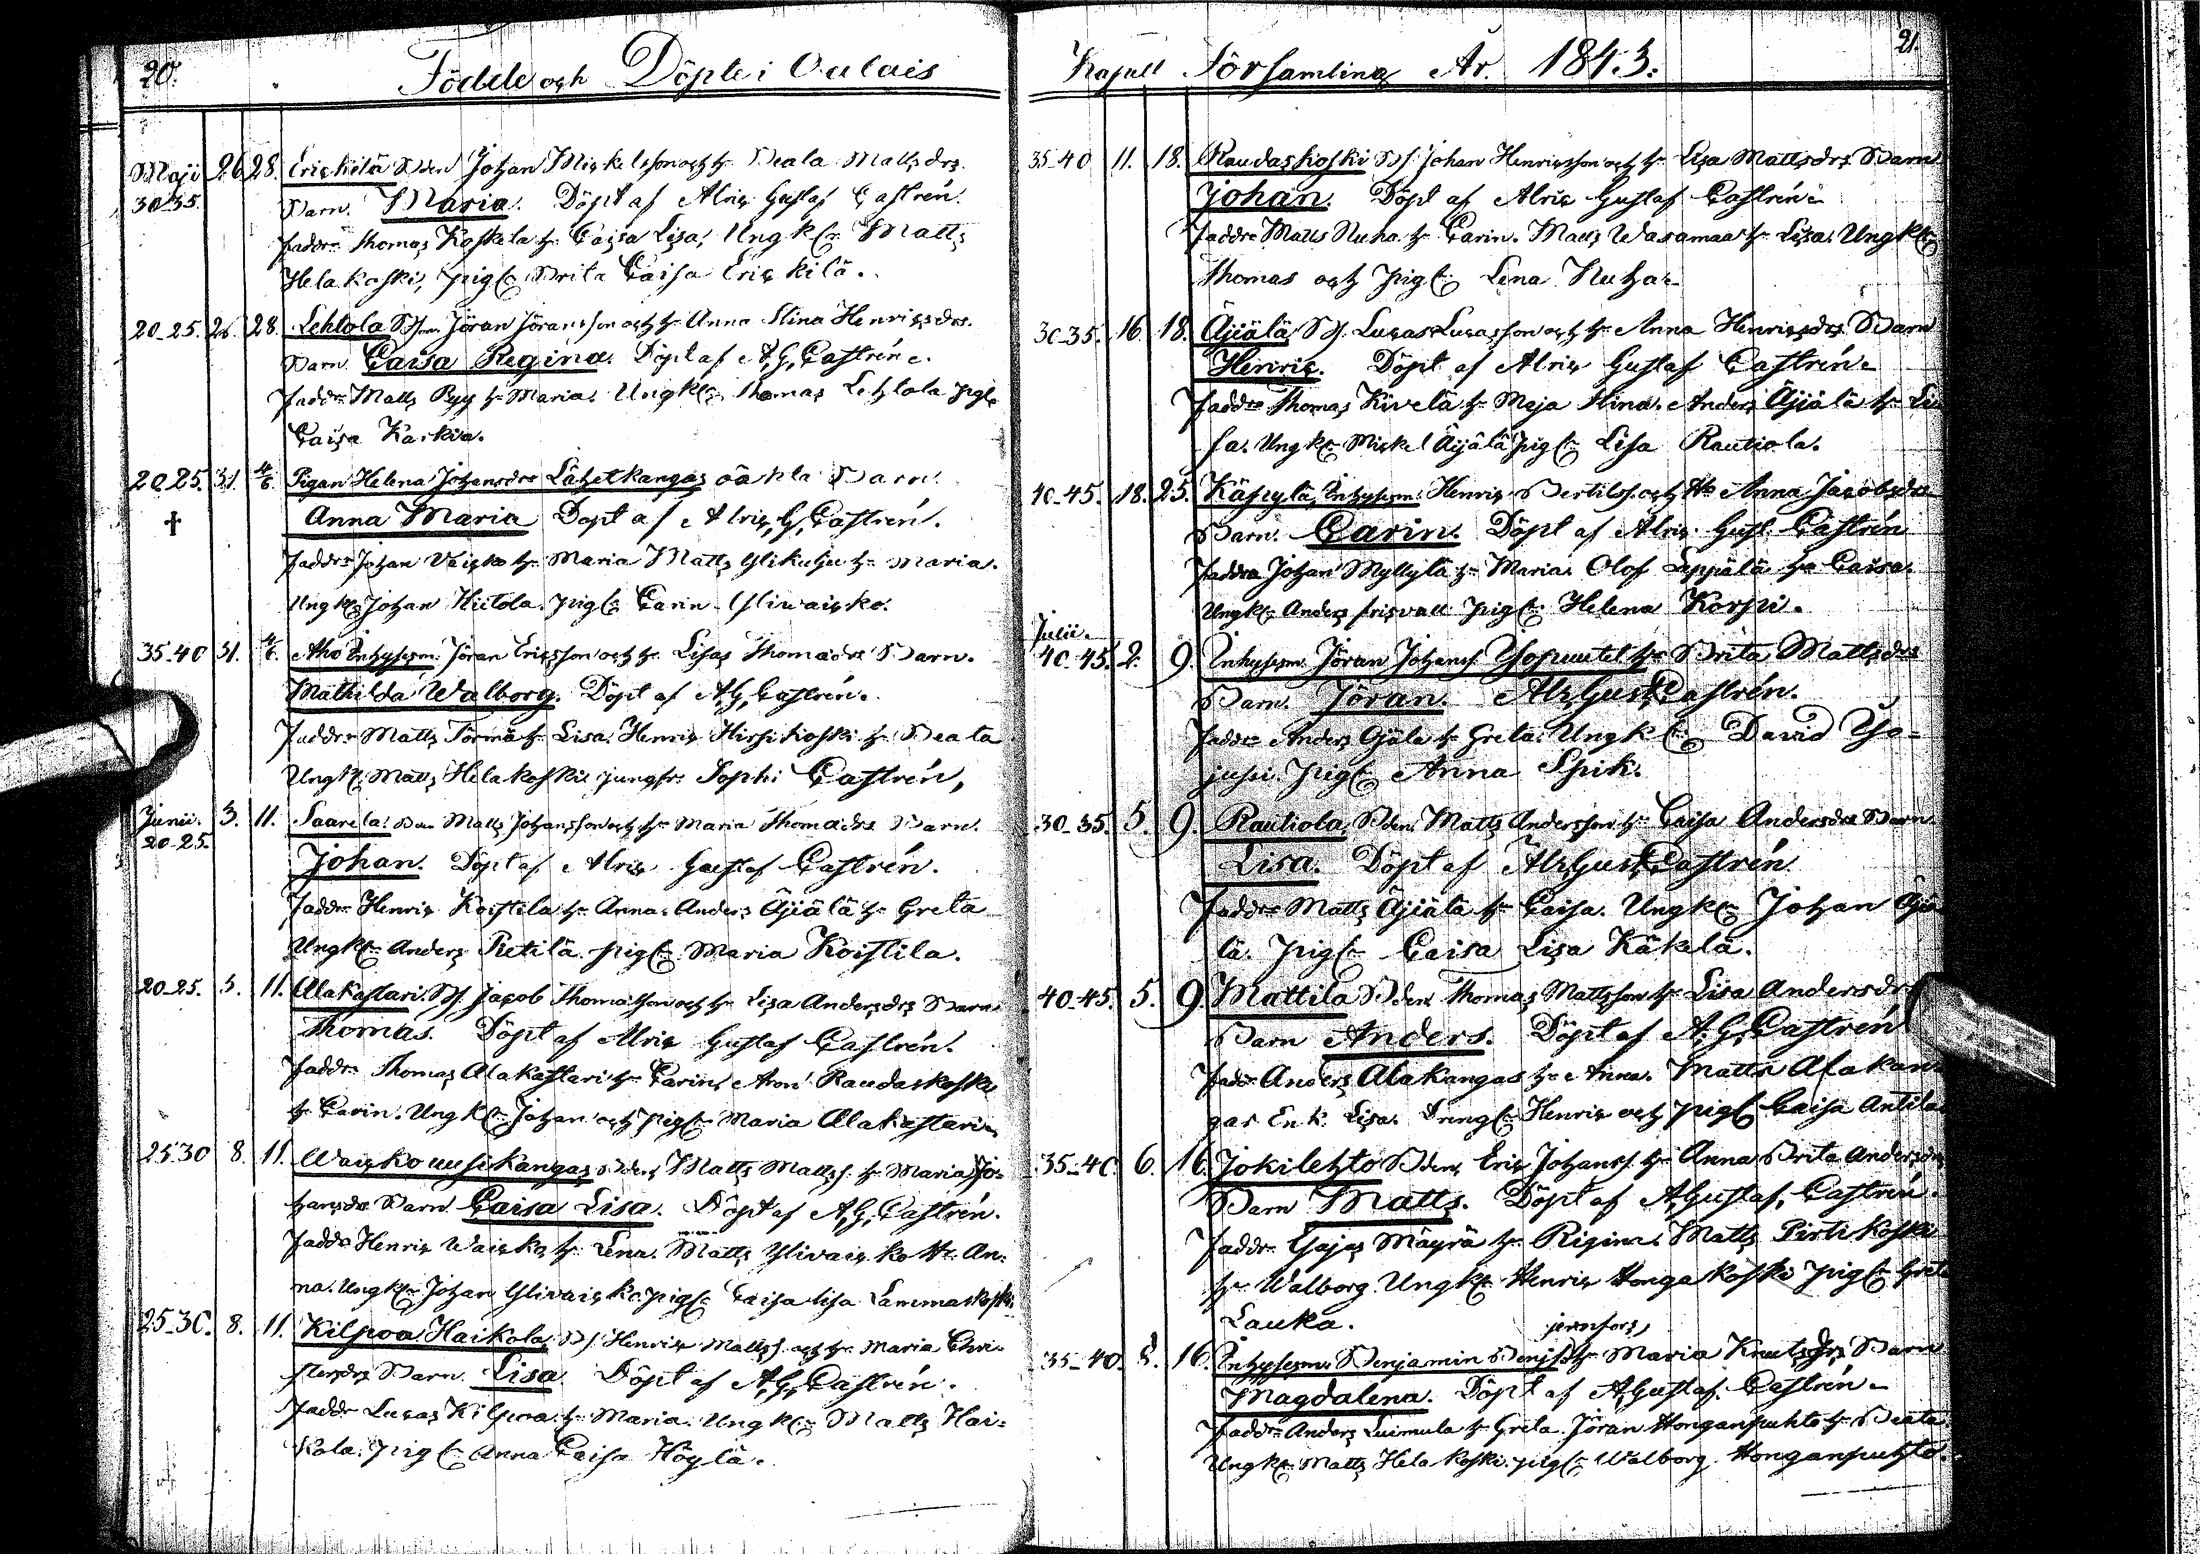 20.
Födde och Döpte i Oulais
Maji 26 28. Erickilä Bden Johan Mickelsson och h: Beata Matts drs
30-35. Barn. Maria. Döpt af Alric Gustaf Castrén.
Faddr Thomas Koskela h: Caisa Lisa, Ungk: Matts
Helakoski, pig: Brita Caisa Erickilä.
20-25. 26. 28. Lehtola Jöran Jöransson och h: Anna Stina Henricsdrs.
Barn Caisa Regina. Döpt af A, G, Castrén.
Faddr Matts Pyy h: Maria. Ungk: Thomas Lehtola pig:
Caisa Karkia.
20 25. 31. 4/6 Pigan Helena Johansdrs Lähetkangas oäkta Barn
† Anna Maria Döpt af Alric, G, Castrén.
Faddr Johan Vaicko h: Maria Matts Ylikulju h: Maria.
Ungk: Johan Hiitola. pig: Carin Ylivaicko.
35-40 31. 4/6 Aho Inhysesm. Jöran Ericsson och h: Lisas Thomadrs Barn.
Mathilda Walborg. Döpt af A, G, Castrén.
Faddr Matts Törmä h: Lisa. Henric Hirsikoski h: Beata
Ungk: Matts Helakoski jungfr. Sophi Castrén,
Junii. 3. 11. Saarela Bden Matts Johansson och h: Maria Thomadrs Barn.
20-25. Johan. Döpt af Alric Gustaf Castrén.
Faddr Henric Koistila h: Anna. Anders Äjälä h: Greta
Ungk: Anders Pietilä. pig: Maria Koistila.
20-25. 5. 11. Alakastari. Bs. Jacob Thomasson och h: Lisa Andersdrs Barn
Thomas. Döpt af Alric Gustaf Castrén.
Faddr Thomas Alakastari h: Carin, Aron Raudaskoski
h: Carin. Ungk: Johan och pig: Maria Alakastari.
25 30 8. 11. Waickouusikangas Bden Matts Mattss. h: Maria Jo-
hansdrs Barn Caisa Lisa. Döpt af A, G, Castrén.
Faddr Henric Waicko h: Lena. Matts Ylivaicko H: An-
na. Ungk: Johan Ylivaicko pig: Caisa Lisa Lammaskoski
25-30. 8. 11. Kilpoa Haikola, Bs. Henric Mattss. och h: Maria Chri-
stersdrs Barn. Lisa. Döpt af A, G, Castrén.
Faddr Lucas Kilpoa h: Maria. Ungk: Matts Hai-
kola. pig: Anna Caisa Höylä.
21.
Kapell Församling År. 1843.
35-40 11. 18. Raudaskoski Bs. Johan Henricsson och h: Lisa Mattsdrs Barn
Johan. Döpt af Alric Gustaf Castrén.
Faddr Matts Nuha h: Carin. Matts Wasamaa h: Lisa. Ungk:
Thomas och pig: Lena Nuha.
30-35. 16. 18. Äjälä Bs. Lucas Lucasson och h: Anna Henricsdrs Barn
Henric. Döpt af Alric Gustaf Castrén.
Faddr Thomas Kivelä h: Maja Stina. Anders Äjälä h: Li-
sa. Ungk: Mickel Äjälä pig: Lisa Rautiola.
40-45. 18. 25. Käpylä Inhysesm. Henric Bertilss. och H: Anna Jacobsdrs
Barn. Carin. Döpt af Alric Gust. Castrén
Faddr Johan Myllylä h: Maria. Olof Leppälä h: Caisa.
Ungk: Anders Friskvall pig: Helena Korpi.
Julii.
40-45. 2. 9. Inhysesm. Jöran Johanss. h: Brita Mattsdrs
Barn. Jöran. Alr, Gust, Castrén.
Faddr Anders Ojala h: Greta. Ungk: David Yo-
pig: Anna Spik.
30-35. 5. 9. Rautiola, Bden Matts Andersson h: Caisa Andersdrs Barn
Lisa. Döpt af Alr, Gust, Castrén
Faddr Matts Äjälä h: Caisa. Ungk: Johan Äjä-
lä. pig: Caisa Lisa Käkelä.
40-45. 5. 9. Mattila Bden Thomas Mattsson h: Lisa Andersdr
Barn Anders. Döpt af A. G, Castrén
Faddr Anders Alakangas h: Anna. Matts Alakan-
gas Enk. Lisa. Dreng: Henric och pig: Caisa Antila
35-40. 6. 16. Jokilehto Bden, Eric Johanss. h: Anna Brita Andersdrs
Barn Matts. Döpt af A, Gustaf, Castrén.
Faddr Gajas Mäyrä h: Regina. Matts Pirtikoski
h: Walborg. Ungk: Henric Hongakoski pig: Greta
Lauka.
jernfors,
35-40. 8. 16. Inhysesm. Benjamin Benjs. h: Maria Knutsdrs Barn
Magdalena. Döpt af A, Gustaf. Castrén.
Faddr Anders Luimula h: Greta. Jöran Honganpuhto h: Beata.
Ungk: Matts Helakoski. pig: Walborg Honganpuhto.